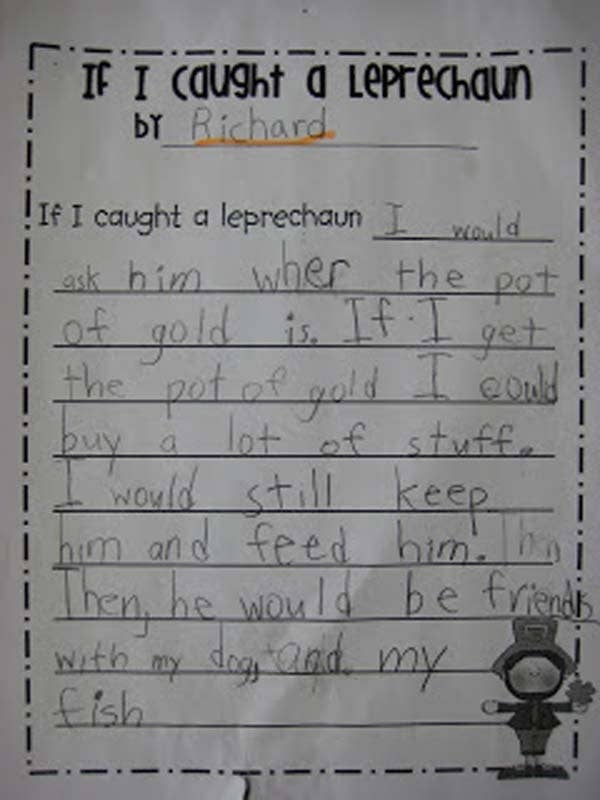 If I caught a Leprechaun
by Richard
If I caught a leprechaun I would
ask him wher the pot
of gold is. If I get
the pot of gold I could
buy a lot of stuff.
I would still keep
him and feed him. Then
Then, he would be friends
with my dog, and my
fish